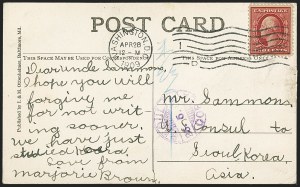 POST CARD
WASHINGTON, D.C.
APR 28
12-M
1909
THIS SPACE MAY BE USED FOR
THIS SPACE FOR
Dear uncle Sammons,
I hope you will
forgive me
for not writ
ing sooner,
we have just
Love from
Marjorie Brown.
Mr. Sammons,
U. Consul to
Seoul Korea,
Asia.
Published by I. & M. Ottenheimer, Baltimore, Md.